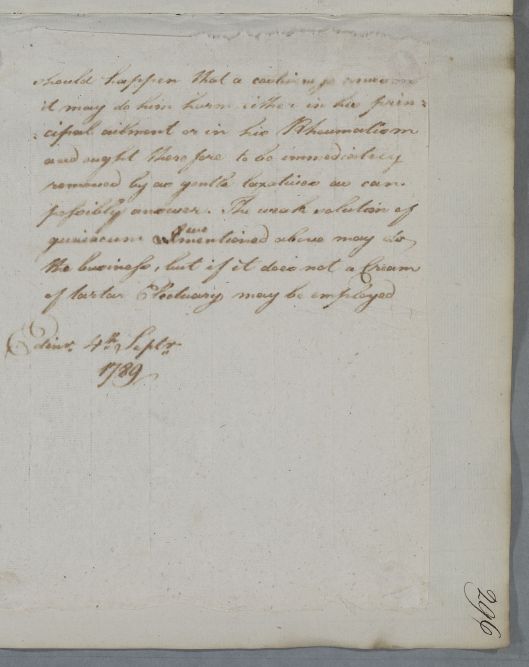 should happen that a costiveness comes on
it may do him harm either in his prin:
:cipal ailment or in his Rheumatism
and ought therefore to be immediately
removed by as gentle laxatives as can
possibly answer. The weak solution of
guaiacum we mentioned above may do
the business, but if it does not a Cream
of tartar Electuary may be employed
Edinr. 4th. Septr.
1789
296